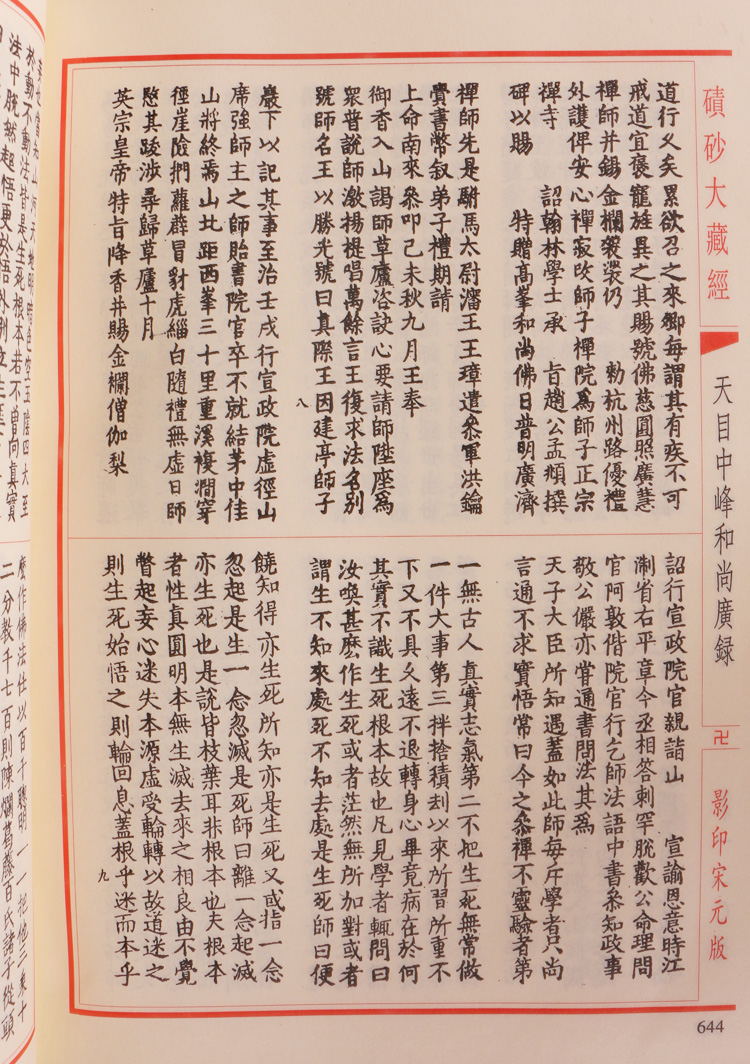 磧砂大藏經
天目中峰和尚廣録
卍
影印宋元版
道行乆矣累欲召之來郷每謂其有疾不可
戒道宜褒寵旌異之其賜號佛慈圓照廣慧
禪師并錫金襴袈裟仍 勑杭州路優禮
外護俾安心禪寂改師子禪院爲師子正宗
禪寺 詔翰林學士承 旨趙公孟頫撰
碑以賜 特贈高峯和尚佛日普明廣濟
禪師先是駙馬太尉瀋王王璋遣叅軍洪鑰
賫書幣叙弟子禮期請
上命南來叅叩己未秋九月王奉
御香入山謁師草廬咨訣心要請師陞座爲
衆普說師激揚提唱萬餘言王復求法名别
號師名王以勝光號曰真際王因建亭師子
八
巖下以記其事至治壬戌行宣政院虚徑山
席強師主之師貽書院官卒不就結茅中佳
山將終焉山北距西峯三十里重溪複澗穿
徑崖險捫蘿薜冒豺虎緇白隨禮無虚日師
愍其跋涉尋歸草廬十月
英宗皇帝特旨降香并賜金襴僧伽梨
詔行宣政院官親詣山 宣諭恩意時江
淛省右平章今丞相答剌罕脫歡公命理問
官阿敦偕院官行乞師法語中書叅知政事
敬公儼亦甞通書問法其爲
天子大臣所知遇蓋如此師每斥學者只尚
言通不求實悟常曰今之叅禪不靈驗者第
一無古人真實志氣第二不把生死無常做
一件大事第三拌捨積刦以來所習所重不
下又不具乆遠不退轉身心畢竟病在於何
其實不識生死根本故也凡見學者輒問曰
汝喚甚麽作生死或者茫然無所加對或者
謂生不知來處死不知去處是生死師曰便
饒知得亦生死所知亦是生死又或指一念
忽起是生一念忽滅是死師曰離一念起滅
亦生死也是說皆枝葉耳非根本也夫根本
者性真圓明本無生滅去來之相良由不覺
瞥起妄心迷失本源虚受輪轉以故道迷之
則生死始悟之則輪回息蓋根乎迷而本乎
九
644
於動不動法皆是生死根本若不曾向真實
法中脫然超悟更於悟外别立生涯
麽作佛法社以百千聦明一一把他三乗十
二分教千七百則陳爛葛藤百氏諸子從頭